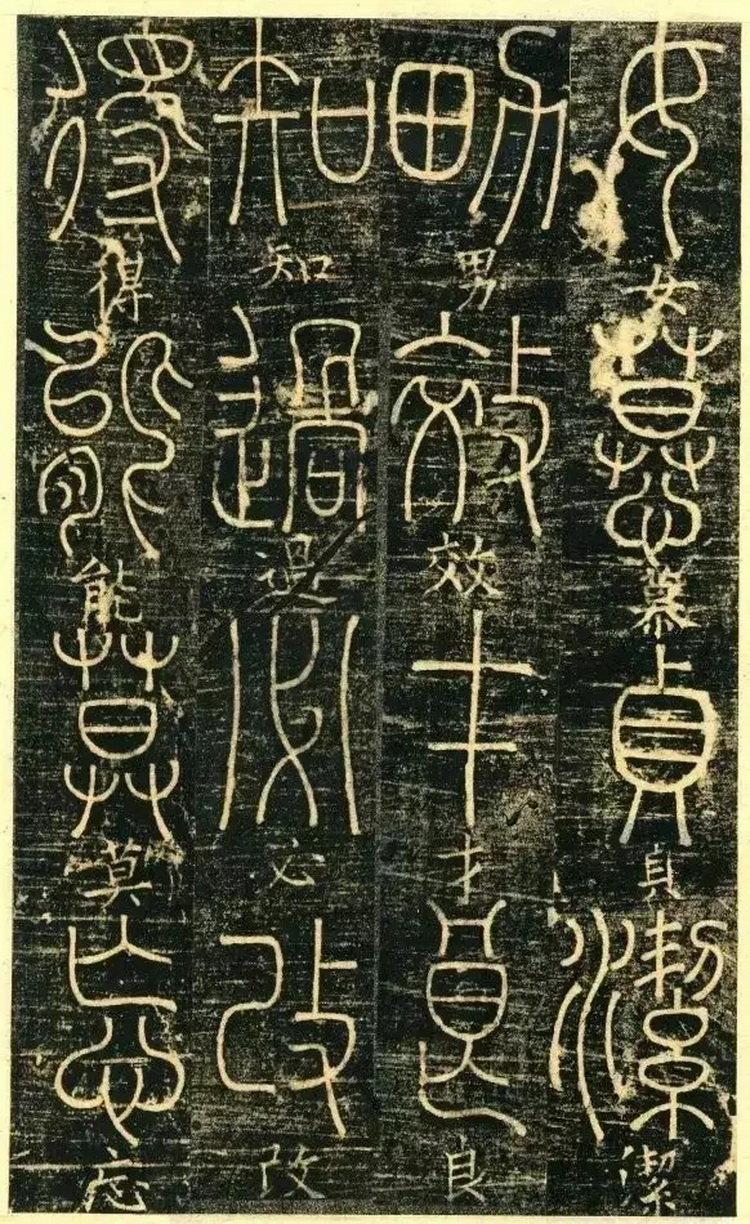 女慕貞潔
男效才良
知過必改
得能莫忘